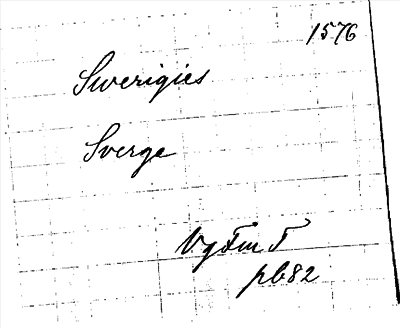 1576
Swerigies
Sverge
VgFmT
pb82